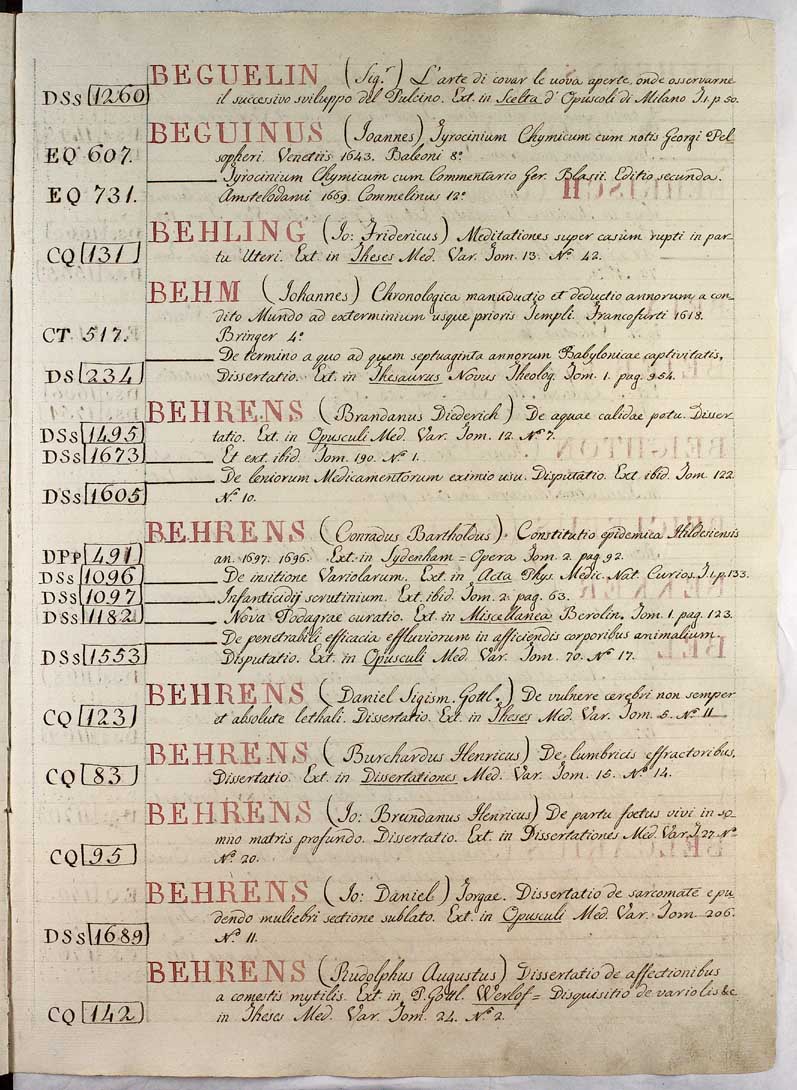 BEGUELIN (Sig.r) L'arte di covar le uova aperte, onde osservarne
DSs 1260 il successivo sviluppo del Pulcino. Ext. in Scelta d'Opuscoli di Milano T.1. p. 50.
BEGUINUS (Ioannes) Tyrocinium Chymicum cum notis Georgi Pel-
EQ 607. sopheri. Venetiis 1643. Baleoni 8.o
Tyrocinium Chymicum cum Commentario Ger. Blasii. Editio secunda.
EQ 731. Amstelodami 1669. Commelinus 12.o
BEHLING (Io: Fridericus) Meditationes super casum rupti in par-
CQ 131 tu Uteri. Ext. in Theses Med. Var. Tom. 13. N.o 42.
BEHM (Iohannes) Chronologica manuductio et deductio annorum a con-
dito Mundo ad exterminium usque prioris Templi. Francofurti 1618.
CT 517. Bringer 4.o
De termino a quo ad quem septuaginta annorum Babylonicae captivitatis,
DS 234 Dissertatio. Ext. in Thesaurus Novus Theolog. Tom. 1. pag. 954.
BEHRENS (Brandanus Diederich) De aquae calidae potu. Disser-
DSs 1495 tatio. Ext. in Opusculi Med. Var. Tom. 12. N.o 7.
DSs 1673 Et ext. ibid. Tom. 190. N.o 1.
De leniorum Medicamentorum eximio usu. Disputatio. Ext. ibid. Tom. 122.
DSs 1605 N.o 10.
BEHRENS (Conradus Bartholdus). Constitutio epidemica Hildesiensis
DPp 491 an. 1697. 1696. Ext. in Sydenham = Opera Tom. 2. pag. 92.
DSs 1096 De insitione Variolarum. Ext. in Acta Phys. Medic. Nat. Curios. T.1. p. 133.
DSs 1097 Infanticidij scrutinium. Ext. ibid. Tom. 2. pag. 63.
DSs 1182 Nova Podagrae curatio. Ext. in Miscellanea Berolin. Tom. 1. pag. 123.
De penetrabili efficacia effluviorum in afficiendis corporibus animalium.
DSs 1553 Disputatio. Ext. in Opusculi Med. Var. Tom. 70. N.o 17.
BEHRENS (Daniel Sigism. Gottl.) De vulnere cerebri non semper
CQ 123 et absolute lethali. Dissertatio. Ext. in Theses Med. Var. Tom. 5. N.o 11
BEHRENS (Burchardus Henricus) De lumbricis effractoribus.
CQ 83 Dissertatio. Ext. in Dissertationes Med. Var. Tom. 15. N.o 14.
BEHRENS (Io: Brandanus Henricus) De partu foetus vivi in so-
mno matris profundo. Dissertatio. Ext. in Dissertationes Med. Var. T. 27 N.o
CQ 95 N.o 20.
BEHRENS (Io: Daniel) Torgae. Dissertatio de sarcomate e pu-
dendo muliebri sectione sublato. Ext. in Opusculi Med. Var. Tom. 206.
DSs 1689 N.o 11.
BEHRENS (Rudolphus Augustus) Dissertatio de affectionibus
a comestis mytilis. Ext. in P. Gottl. Werlof = Disquisitio de variolis &c
CQ 142 in Theses Med. Var. Tom. 24. N.o 2.